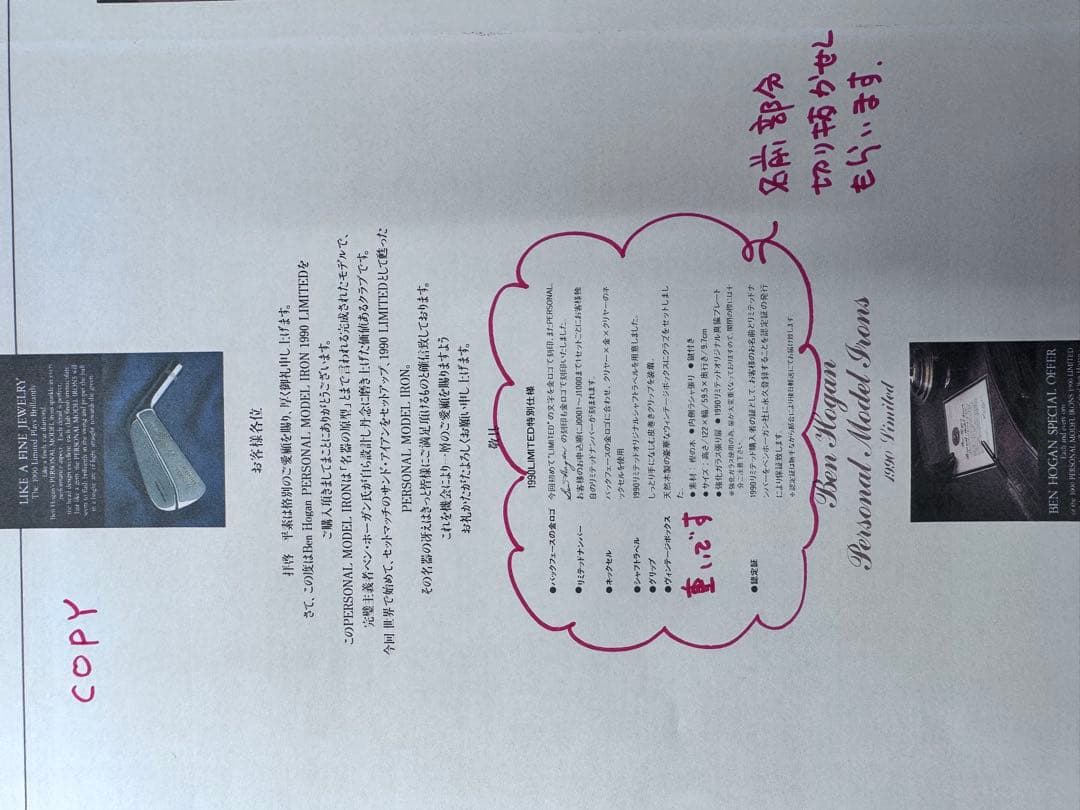 COPY
LIKE A FINE JEWELRY
The 1990 Limited Plays Brilliantly
お客様各位
拝啓　平素は格別のご愛顧を賜り、厚く御礼申し上げます。
さて、この度はBen Hogan PERSONAL MODEL IRON 1990 LIMITEDを
ご購入頂きましてまことにありがとうございます。
このPERSONAL MODEL IRONは「名器の原型」とまで言われる完成されたモデルで、
完璧主義者ベン・ホーガン氏が自ら設計し丹念に磨き上げた価値あるクラブです。
今回 世界で始めて、セットマッチのサンド・アイアンをセットアップ、1990 LIMITEDとして甦った
PERSONAL MODEL IRON。
その名器の冴えはきっと皆様にご満足頂けるものと確信致しております。
これを機会により一層のご愛顧を賜りますよう
お礼かたがたよろしくお願い申し上げます。
敬具
1990LIMITED特別仕様
●バックフェースの金ロゴ 今回初めて"LIMITED"の文字を金ロゴで刻印。またPERSONAL、
Ben Hogan の刻印も金ロゴで刻印いたしました。
●リミテッドナンバー お客様のお申込順にJ0001～J1000まで1セットごとにお客様独
自のリミテッドナンバーが刻まれます。
●ネックセル バックフェースの金ロゴに合わせ、クリヤー×金×クリヤーのネ
ックセルを使用
●シャフトラベル 1990リミテッドオリジナルシャフトラベルを用意しました。
●グリップ しっとり手になじむ皮巻きグリップを装着。
●ヴィンテージボックス 天然木製の豪華なヴィンテージボックスにクラブをセットしまし
た。
重いです
●素材：樫の木 ●内側ラシャ張り ●鍵付き
●サイズ：高さ/122×幅/59.5×奥行き/9.7cm
●強化ガラス張り扉 ●1990リミテッドオリジナル真鍮プレート
●認定証 1990リミテッド購入者の証として、お客様のお名前とリミテッドナ
ンバーをベンホーガン社に永久登録することを認定証の発行
により保証致します。
名前部分
切り抜かせし
もらいます.
Ben Hogan
Personal Model Irons
1990 Limited
BEN HOGAN SPECIAL OFFER
of the 1000 PERSONAL MODEL IRONS 1990 LIMITED